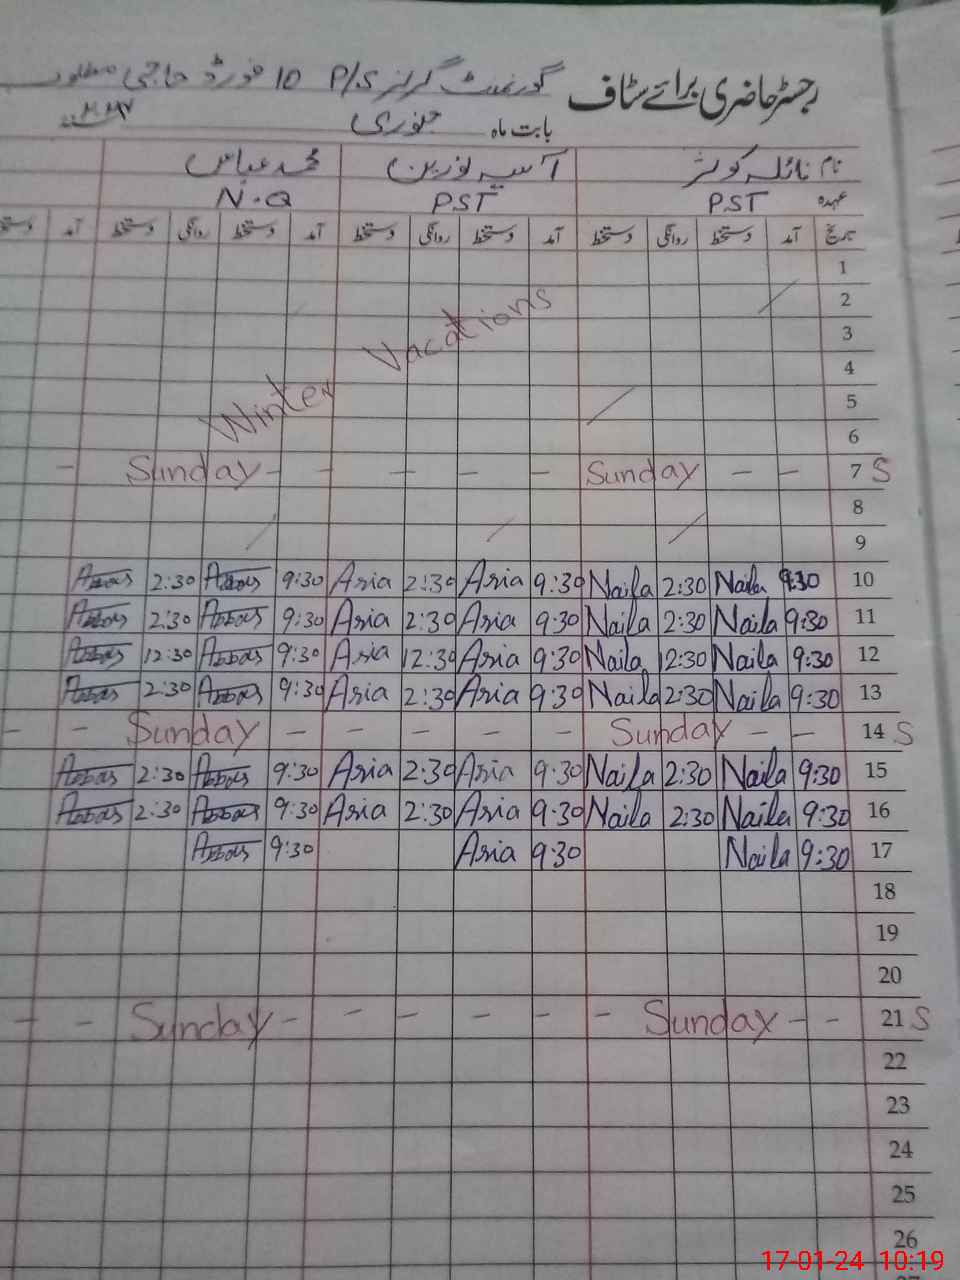 رجسٹر حاضری برائے سٹاف گورنمنٹ گرلز P/S 10 فورڈ حاجی
بابت ماہ جنوری
نام نائلہ کوثر آسیہ نورین محمد عباس
عہدہ PST PST N.Q
تاریخ آمد دستخط روانگی دستخط آمد دستخط روانگی دستخط آمد دستخط روانگی دستخط آمد
1
2
3
4
5
6
Winter Vacations
7 S - - Sunday - - - - - Sunday -
8
9
10 9:30 Naila 2:30 Naila 9:30 Asia 2:30 Asia 9:30 Abbas 2:30 Abbas
11 9:30 Naila 2:30 Naila 9:30 Asia 2:30 Asia 9:30 Abbas 2:30 Abbas
12 9:30 Naila 12:30 Naila 9:30 Asia 12:30 Asia 9:30 Abbas 12:30 Abbas
13 9:30 Naila 2:30 Naila 9:30 Asia 2:30 Asia 9:30 Abbas 2:30 Abbas
14 S - - Sunday - - - - - Sunday - -
15 9:30 Naila 2:30 Naila 9:30 Asia 2:30 Asia 9:30 Abbas 2:30 Abbas
16 9:30 Naila 2:30 Naila 9:30 Asia 2:30 Asia 9:30 Abbas 2:30 Abbas
17 9:30 Naila 9:30 Asia 9:30 Abbas
18
19
20
21 S - - Sunday - - - - - - Sunday - -
22
23
24
25
26
17-01-24 10:19